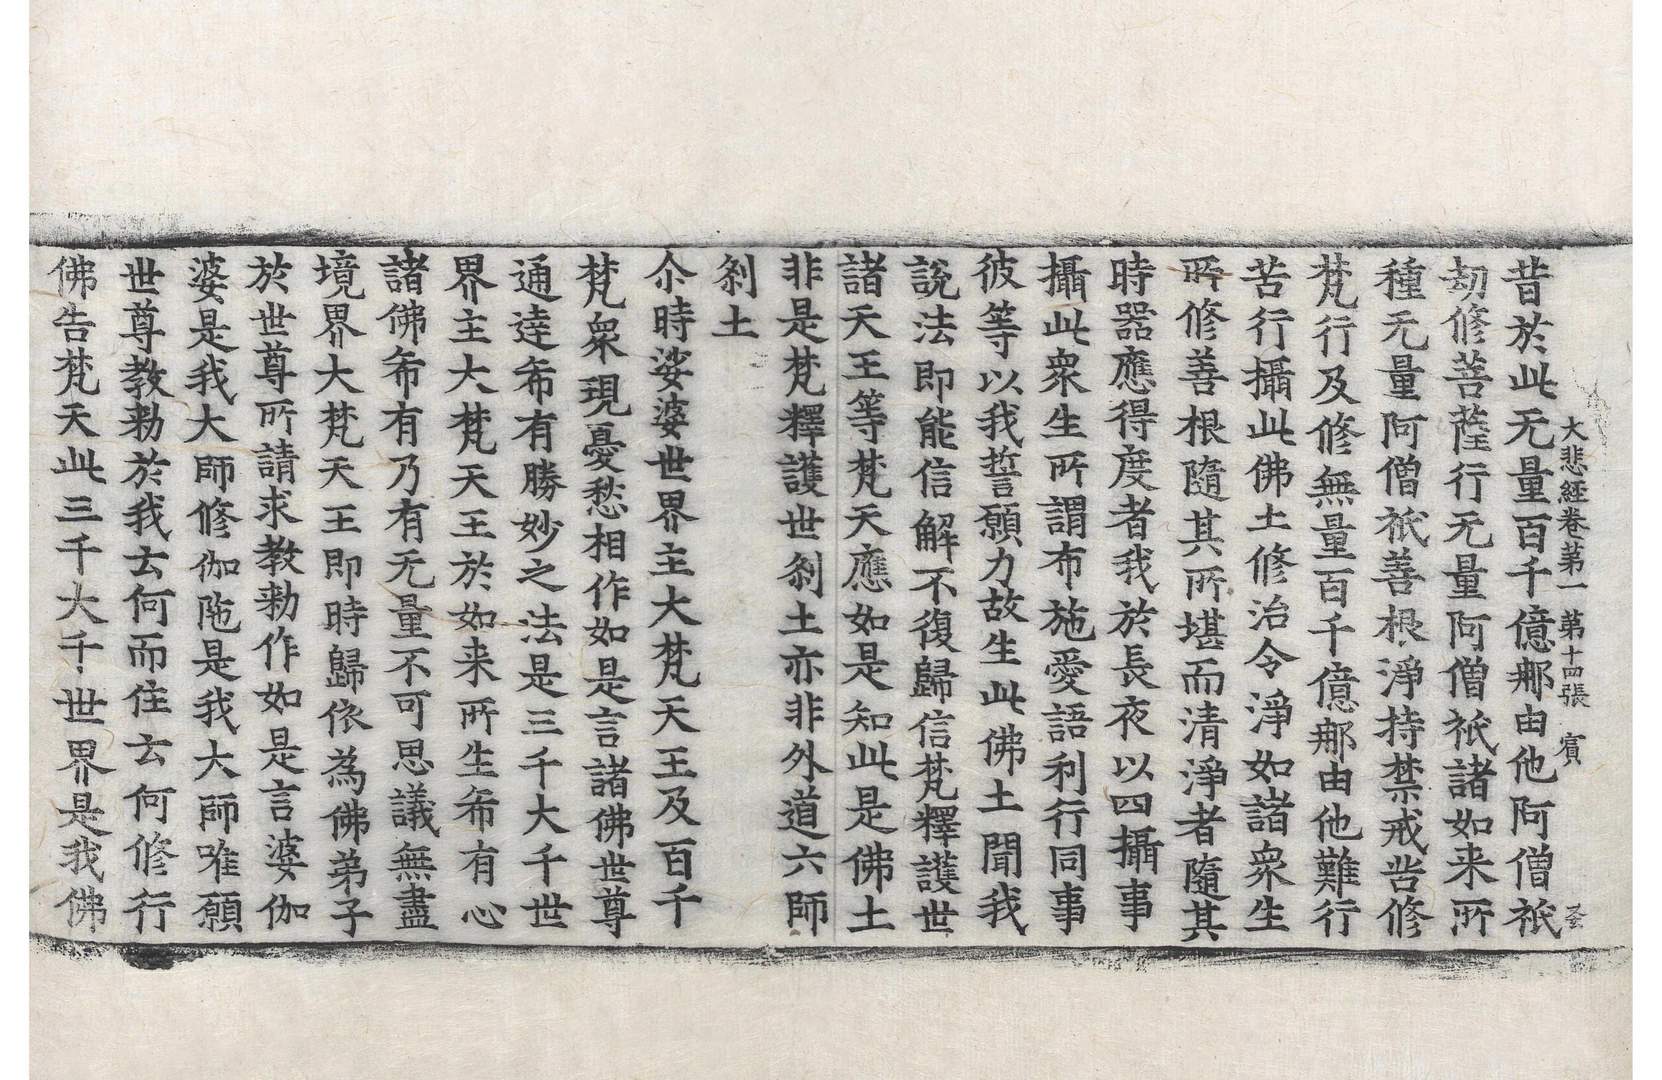 大悲経卷第一　第十四張　賔　圣
昔於此无量百千億𨙻由他阿僧祇
劫修菩薩行无量阿僧祇諸如来所
種无量阿僧祇善根淨持禁戒苦修
梵行及修無量百千億𨙻由他難行
苦行攝此佛土修治令淨如諸衆生
所修善根隨其所堪而清淨者隨其
時器應得度者我於長夜以四攝事
攝此衆生所謂布施愛語利行同事
彼等以我誓願力故生此佛土聞我
說法即能信解不復歸信梵釋護世
諸天王等梵天應如是知此是佛土
非是梵釋護世剎土亦非外道六師
剎土
尒時娑婆世界主大梵天王及百千
梵衆現憂愁相作如是言諸佛世尊
通達希有勝妙之法是三千大千世
界主大梵天王於如来所生希有心
諸佛希有乃有无量不可思議無盡
境界大梵天王即時歸依為佛弟子
於世尊所請求教勑作如是言婆伽
婆是我大師修伽陁是我大師唯願
世尊教勑於我云何而住云何修行
佛告梵天此三千大千世界是我佛